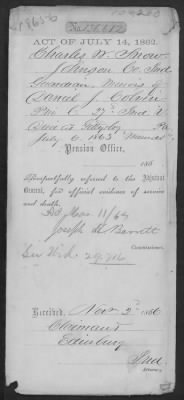 No. 136,682
ACT OF JULY 14, 1862.
Charles W. Snow
Johnson Co. Ind
Guardian, Minors of
Daniel J
Pri. C. 27" Ind V
Died at Gettysburg Pa
July 1863 "Minors"
Pension Office,
186
Respectfully referred to the Adjutant
General, for official evidence of service
and death.
Joseph H. Barrett
Commissioner.
Received, Nov 2" 1866
Claimant
Edinburg
Ind.
Attorney.